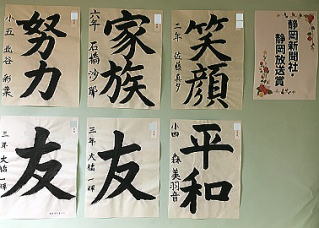 笑顔
二年 佐藤
家族
六年 石橋 沙
努力
小五 北谷 彩葉
静岡新聞社・
静岡放送賞
平和
小四 森 美羽音
友
三年 大橋 一輝
友
三年 大橋 一輝